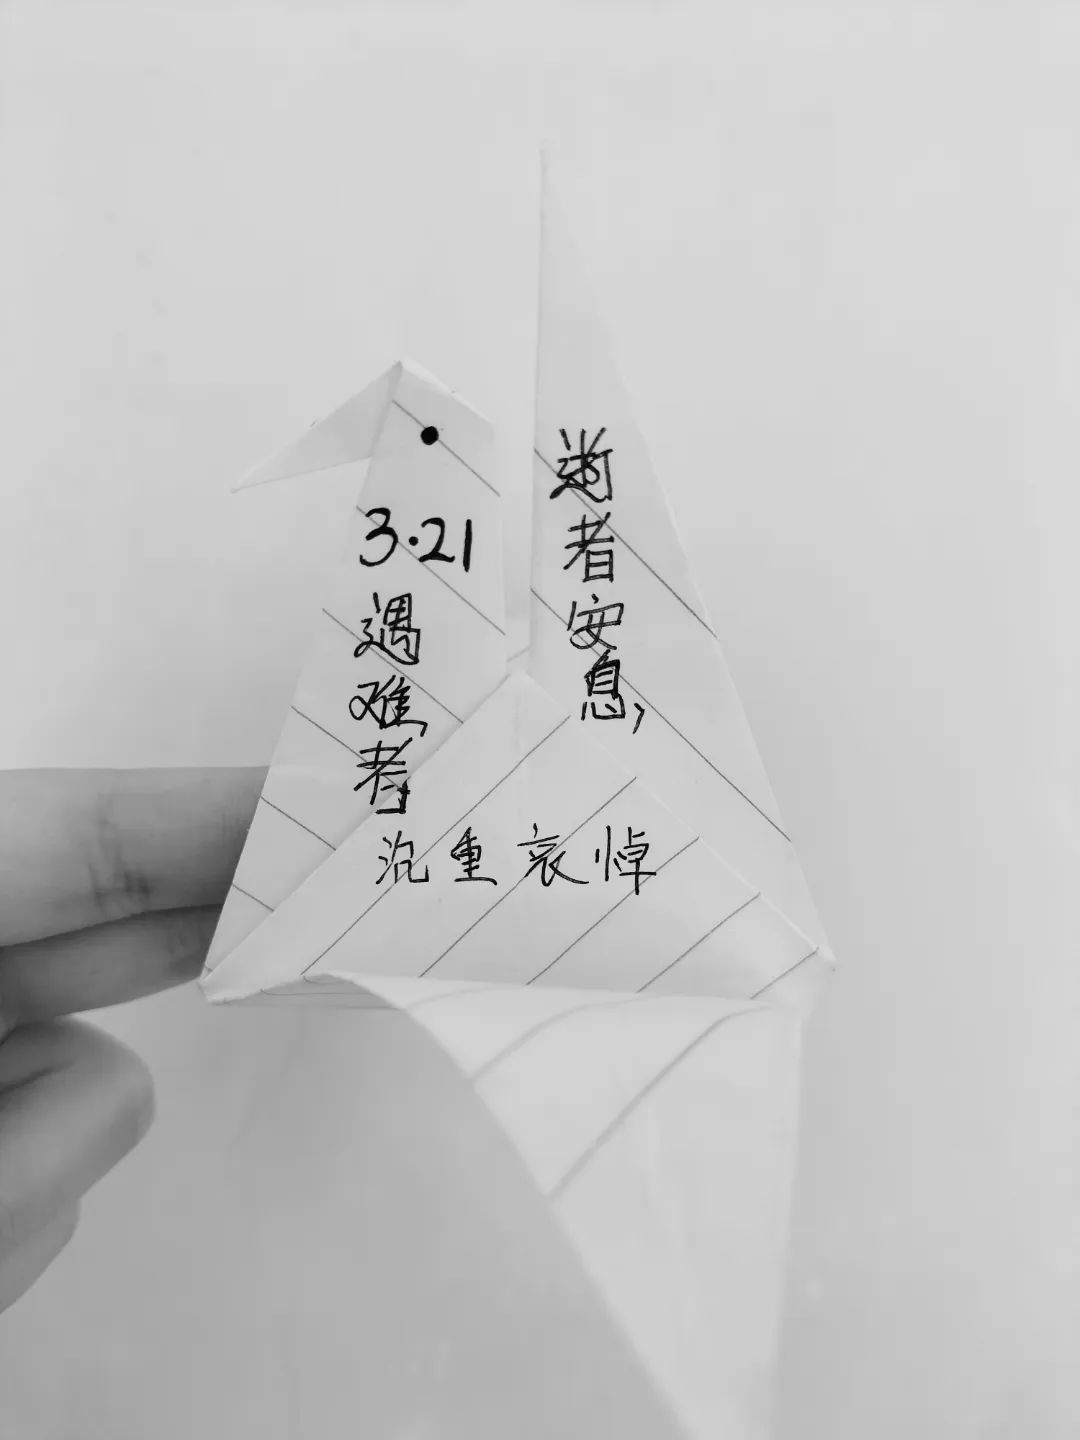 3·21
遇难者
逝者安息,
沉重哀悼